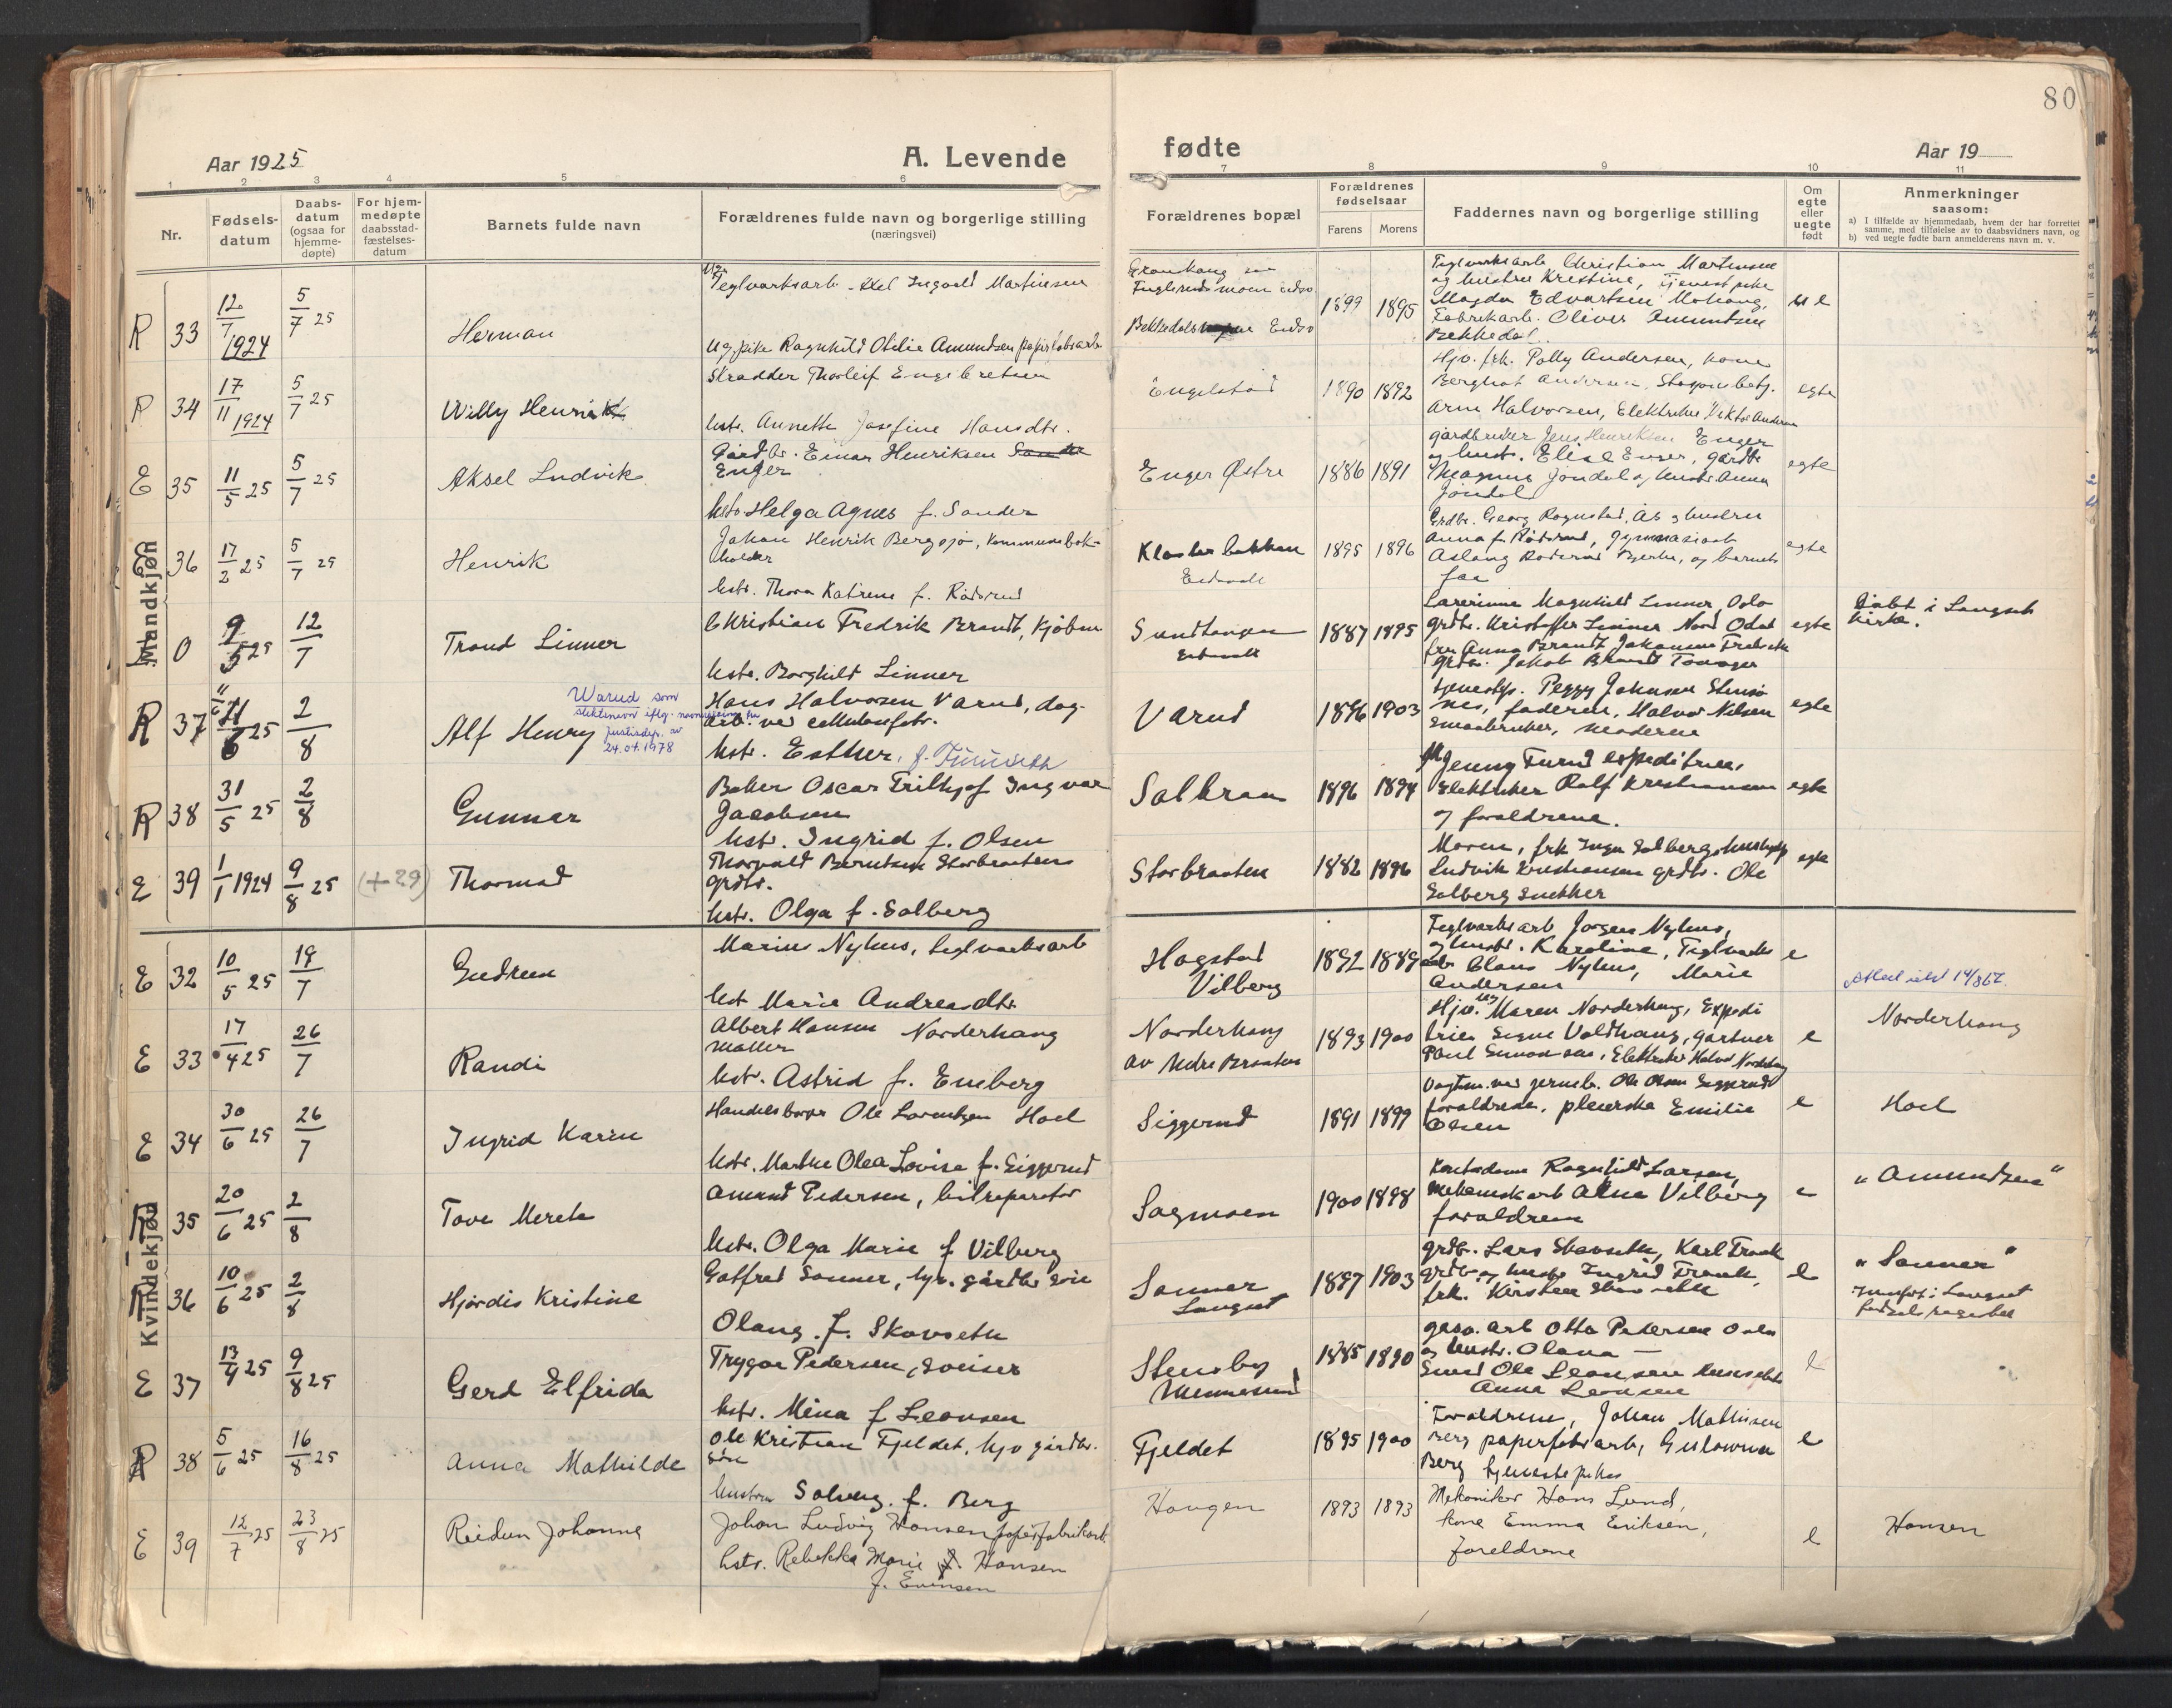 80
Aar 1925
A. Levende
fødte
Aar 19
1 2 3 4 5 6 7 8 9 10 11
Nr.
Fødsels-
datum
Daabs-
datum
(ogsaa for
hjemme-
døpte)
For hjem-
medøpte
daabsstad-
fæstelses-
datum
Barnets fulde navn
Forældrenes fulde navn og borgerlige stilling
(næringsvei)
Forældrenes bopæl
Forældrenes
fødselsaar
Farens Morens
Faddernes navn og borgerlige stilling
Om
egte
eller
uegte
født
Anmerkninger
saasom:
a) I tilfælde av hjemmedaab, hvem der har forrettet
samme, med tilføielse av to daabsvidners navn, og
b) ved uegte fødte barn anmelderens navn m. v.
Mandkjøn
R 33 12/7 1924 5/7 25
Herman
Teglverksarb. Axel Ingvald Martinsen
ug. pike Ragnhild Otilie Amundsen papirfabsarb
1899 1895
Teglverksarb Christian Martinsen
og hustru Kristine, tjenestpike
Magda Edvartsen Mohaug,
Fabrikarb. Oliver Amundsen
Bekkedal
R 34 17/11 1924 5/7 25
Willy Henrik
Skrædder Thorleif Engebretsen
hstr. Annette Josefine Hansdtr.
Engelstad
1890 1892
Hjv. frk. Polly Andersen, kone
Berghot Andersen, Stasjonsbetj.
Arne Halvorsen, Elektriker Viktor Andersen
egte
E 35 11/5 25 5/7 25
Aksel Ludvik
Gårdbr. Einar Henriksen Sander
Enger
hstr. Helga Agnes f. Sander
Enger Østre
1886 1891
gårdbruker Jens Henriksen Enger
og hust. Elise Enger, gårdbr
Magnus Jøndal og hustr. Anna
Jøndal
egte
E 36 17/2 25 5/7 25
Henrik
Johan Henrik Bergsjø, kommunebok-
holder
hstr. Thora Katrine f. Rødsrud
Klokkerbakken
Eidsvoll
1895 1896
Grdbr. Georg Rognstad, Ås og hustru
Anna f. Rødsrud, gymnasiast
Aslaug Rødsrud Bjerke, og barnets
far
egte
0 9/5 25 12/7
Trond Linner
Christian Fredrik Brandt, Kjøbm
hstr. Borghild Linner
Sundtangen
Eidsvoll
1887 1895
Lærerinne Magnhild Linner, Oslo
grdbr. Kristoffer Linner Nord Odal
fru Anna Brandt Johanne Fredrikke
grdbr. Jakob Brandt
egte
Døbt i Langset
kirke.
R 37 11/6 25 2/8
Alf Henry
Warud som
slektsnavn iflg. navneendring fra
justisdep. av
24.04.1978
Hans Halvorsen Varud, dag-
arb. ved cellulosefabr.
hstr. Esther, f.
Varud
1896 1903
tjenestp. Peggy Johnsen Stensø
nes, faderen, Halvor Nilsen
smaabruker, moderen
egte
R 38 31/5 25 2/8
Gunnar
Baker Oscar Frithjof Ingvar
Jacobsen
hstr. Ingrid f. Olsen
1896 1894
frk Jenny Furu ekspeditrise,
Elektriker Rolf Kristiansen
og forældrene.
egte
E 39 1/1 1924 9/8 25 (+29)
Thormod
Thorvald Berntsen Storbraaten
grdbr.
hstr. Olga f. Solberg
Storbraaten
1882 1896
Moren, frk Inga Solberg husholdn
Ludvik Kristiansen grdbr. Ole
Solberg snekker
egte
Kvindekjøn
E 32 10/5 25 19/7
Gudrun
Marius Nyhus, teglverksarb
hst Marie Andreasdtr.
Hagstad
Vilberg
1892 1889
Teglverksarb Jørgen Nyhus,
og hustr. Karoline, Teglverks
arb Claus Nyhus, Marie
Andersen
e
E 33 17/4 25 26/7
Randi
Albert Hansen Norderhaug
Møller
hst. Astrid f. Emberg
Norderhaug
av Nedre Braaten
1893 1900
Hjv. ug Maren Norderhaug, Expedi
trice Signe Voldhaug, gartner
Paul Simonsen, Elektriker Halvor Norderhaug
e
Norderhaug
E 34 30/6 25 26/7
Ingrid Karin
Handelsborger Ole Lorentzen Hoel
hstr. Marthe Olea Lovise f. Siggerud
Siggerud
1891 1899
Vogtm. ved jernb. Ole Olsen Siggerud
forældrene, pleierske Emilie
Olsen
e
Hoel
R 35 20/6 25 2/8
Tove Merete
Amund Pedersen, bilreparatør
hstr. Olga Marie f Vilberg
Sagmoen
1900 1898
Kontordame Ragnhild Larsen,
Mekaniskarb Arne Vilberg
forældrene
e
"Amundsen"
R 36 10/6 25 2/8
Hjørdis Kristine
Gotfred Sonner, hjv. gårdbr søn
Olaug f. Skovseth
Sonner
Langset
1897 1903
grdbr. Lars Skovseth, Karl Frank
grdbr og hustr Ingrid Frank,
frk. Kirsten Skovseth
e
"Sonner"
Innført i Langset
fødselsregister
E 37 13/4 25 9/8 25
Gerd Elfrida
Trygve Pedersen, sveiser
hstr. Mina f Leonsen
Stensby
Minnesund
1885 1890
gasv. arb Otto Pedersen Oslo
og hustr. Olana —
Smed Ole Leonsen
Anna Leonsen
e
R 38 5/6 25 16/8 25
Anna Mathilde
Ole Kristian Fjeldet, hjv gårdbr.
søn
hustru Solveig f. Berg
Fjeldet
1895 1900
Forældrene, Johan Mathisen
Berg papirfabrarb, Gulowna
Berg tjenestepike
e
E 39 12/7 25 23/8 25
Reidun Johanne
Johan Ludvig Hansen papirfabrikarb.
hstr. Rebekka Marie f. Hansen
f. Evensen
Haugen
1893 1893
Mekaniker Hans Lund,
kone Emma Eriksen,
foreldrene
e
Hansen